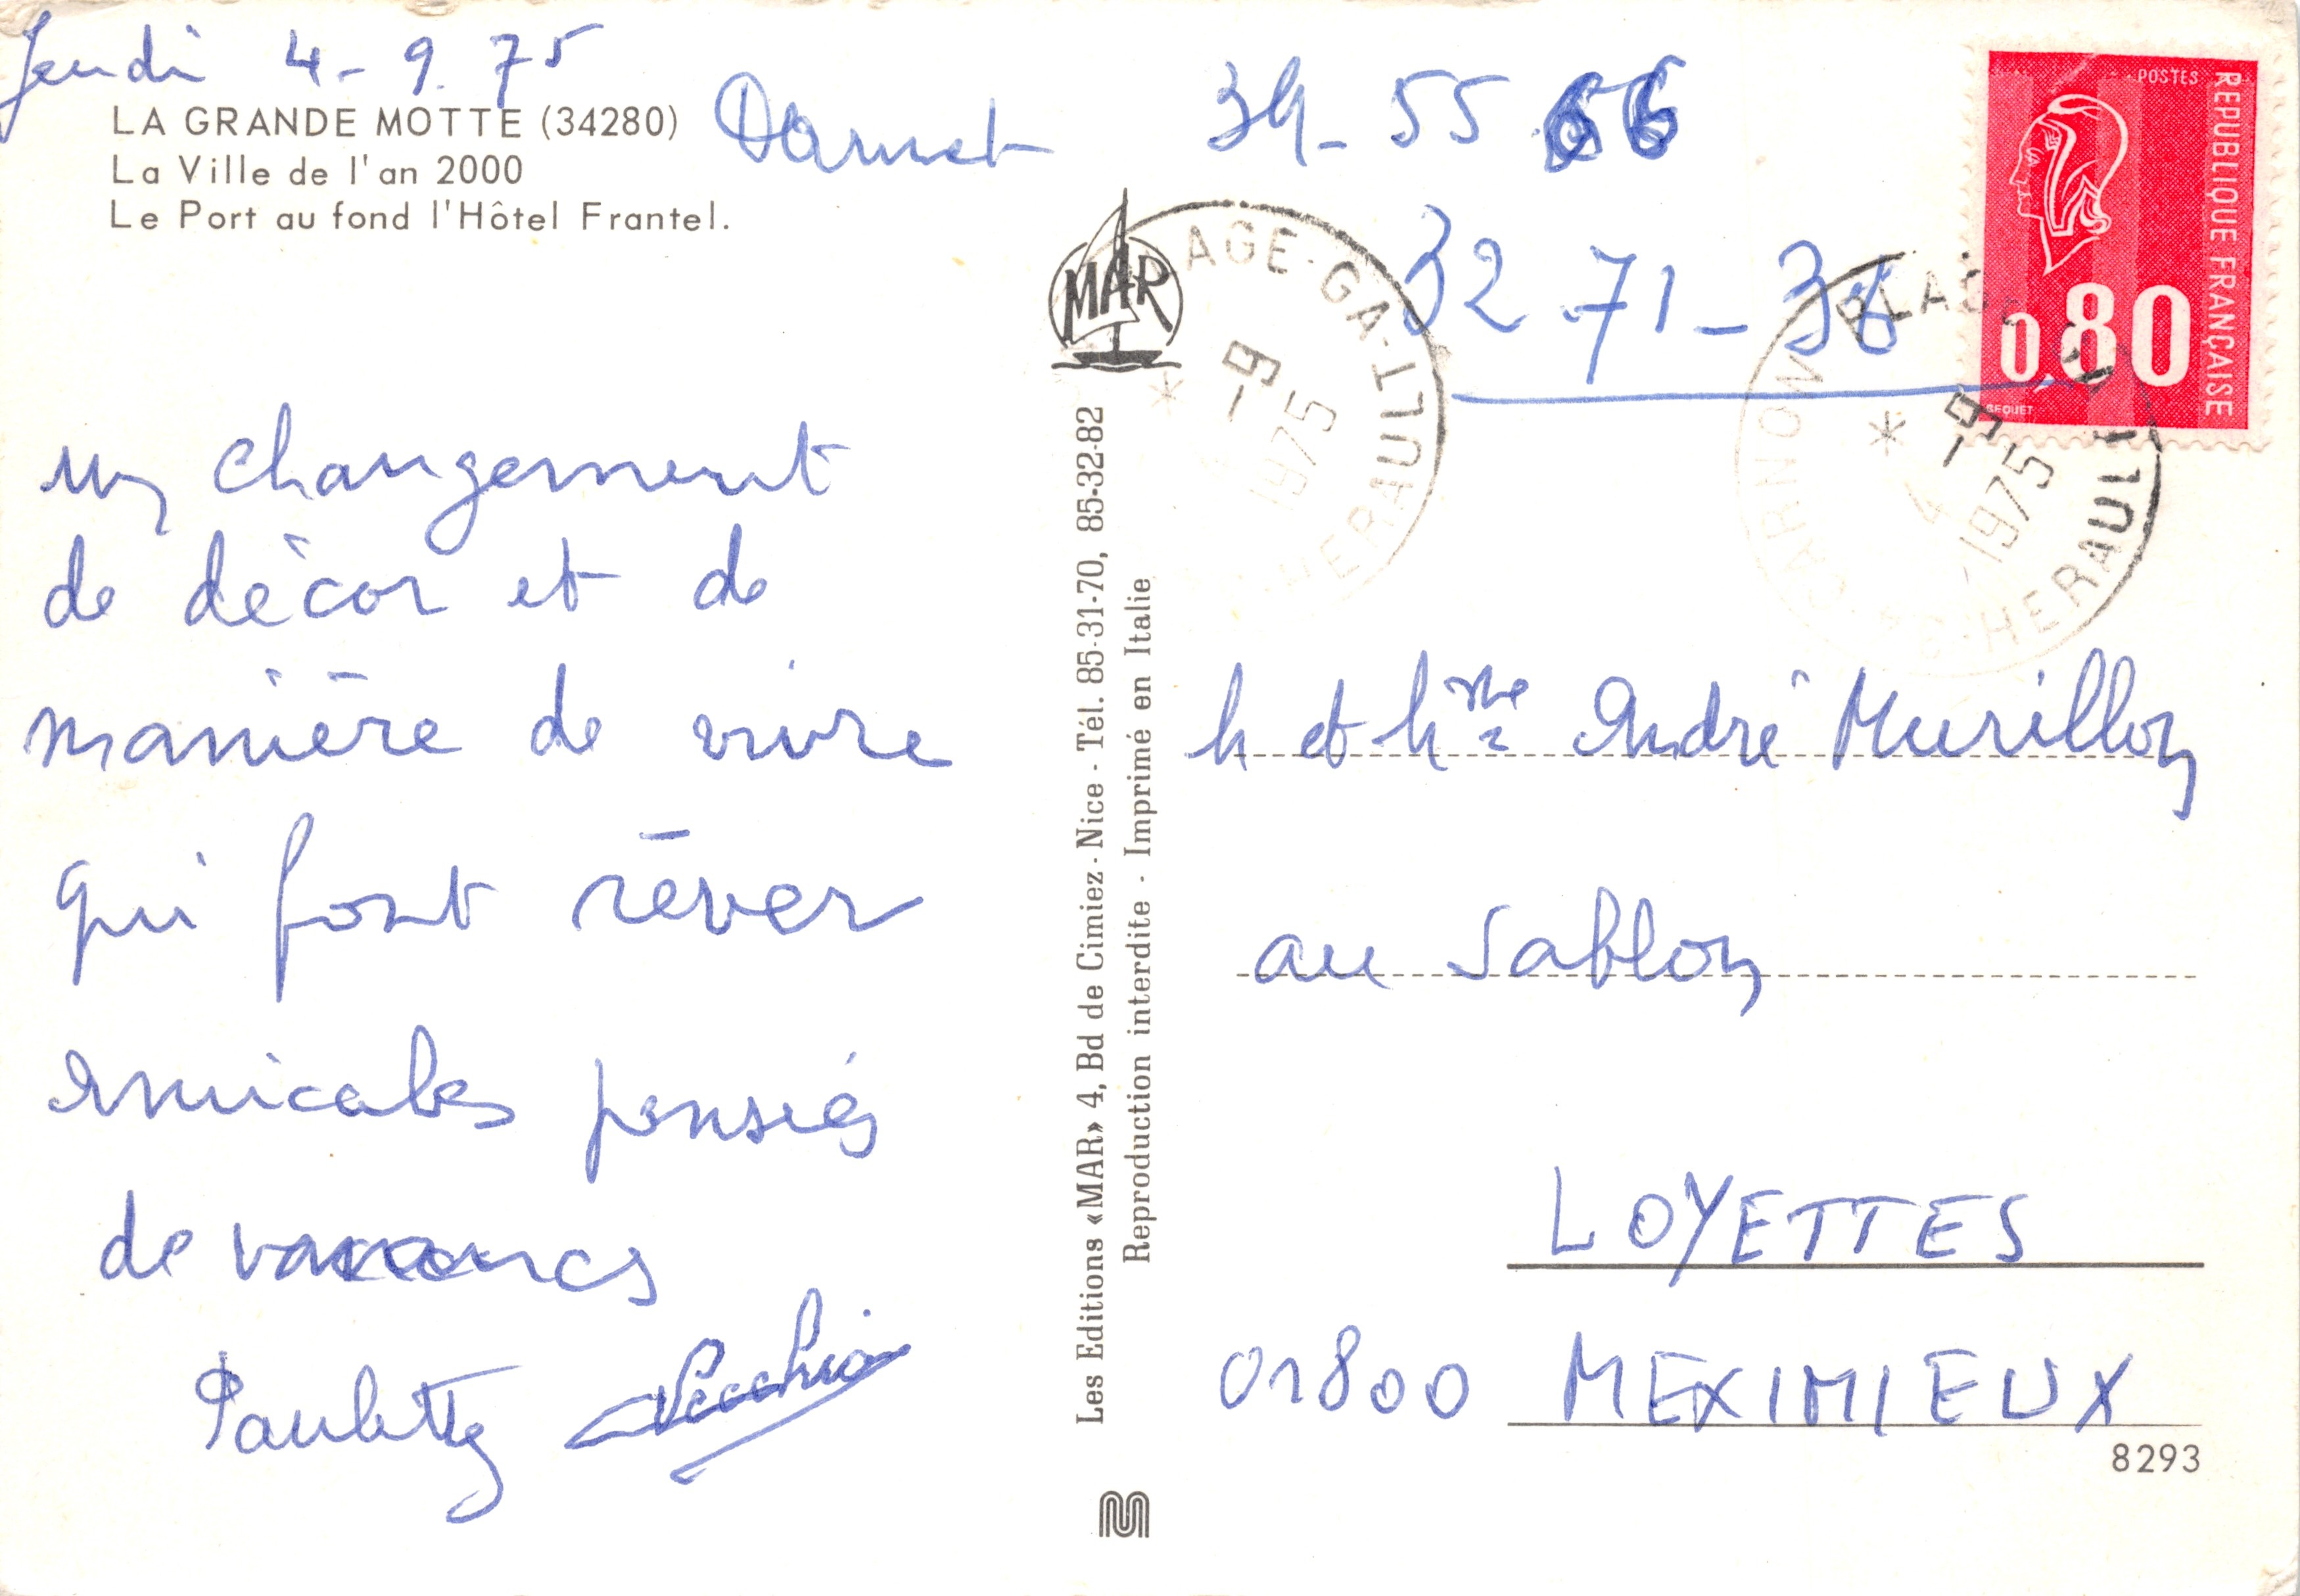 Jeudi 4-9.75
LA GRANDE MOTTE (34280)
La Ville de l'an 2000
Le Port au fond l'Hôtel Frantel.
Darnet 34-55 66
32 71-38
un changement
de décor et de
manière de vivre
qui font rêver
amicales pensées
de vacances
Paulette Vecchia
Les Editions «MAR» 4, Bd de Cimiez - Nice - Tél. 85-31-70, 85-32-82
Reproduction interdite - Imprimé en Italie
MAR
POSTES
REPUBLIQUE FRANÇAISE
0,80
BEQUET
-9
1975
HERAULT
-9
1975
HERAULT
M et Mme André Murillon
au Sablon
LOYETTES
01800 MEXIMIEUX
8293